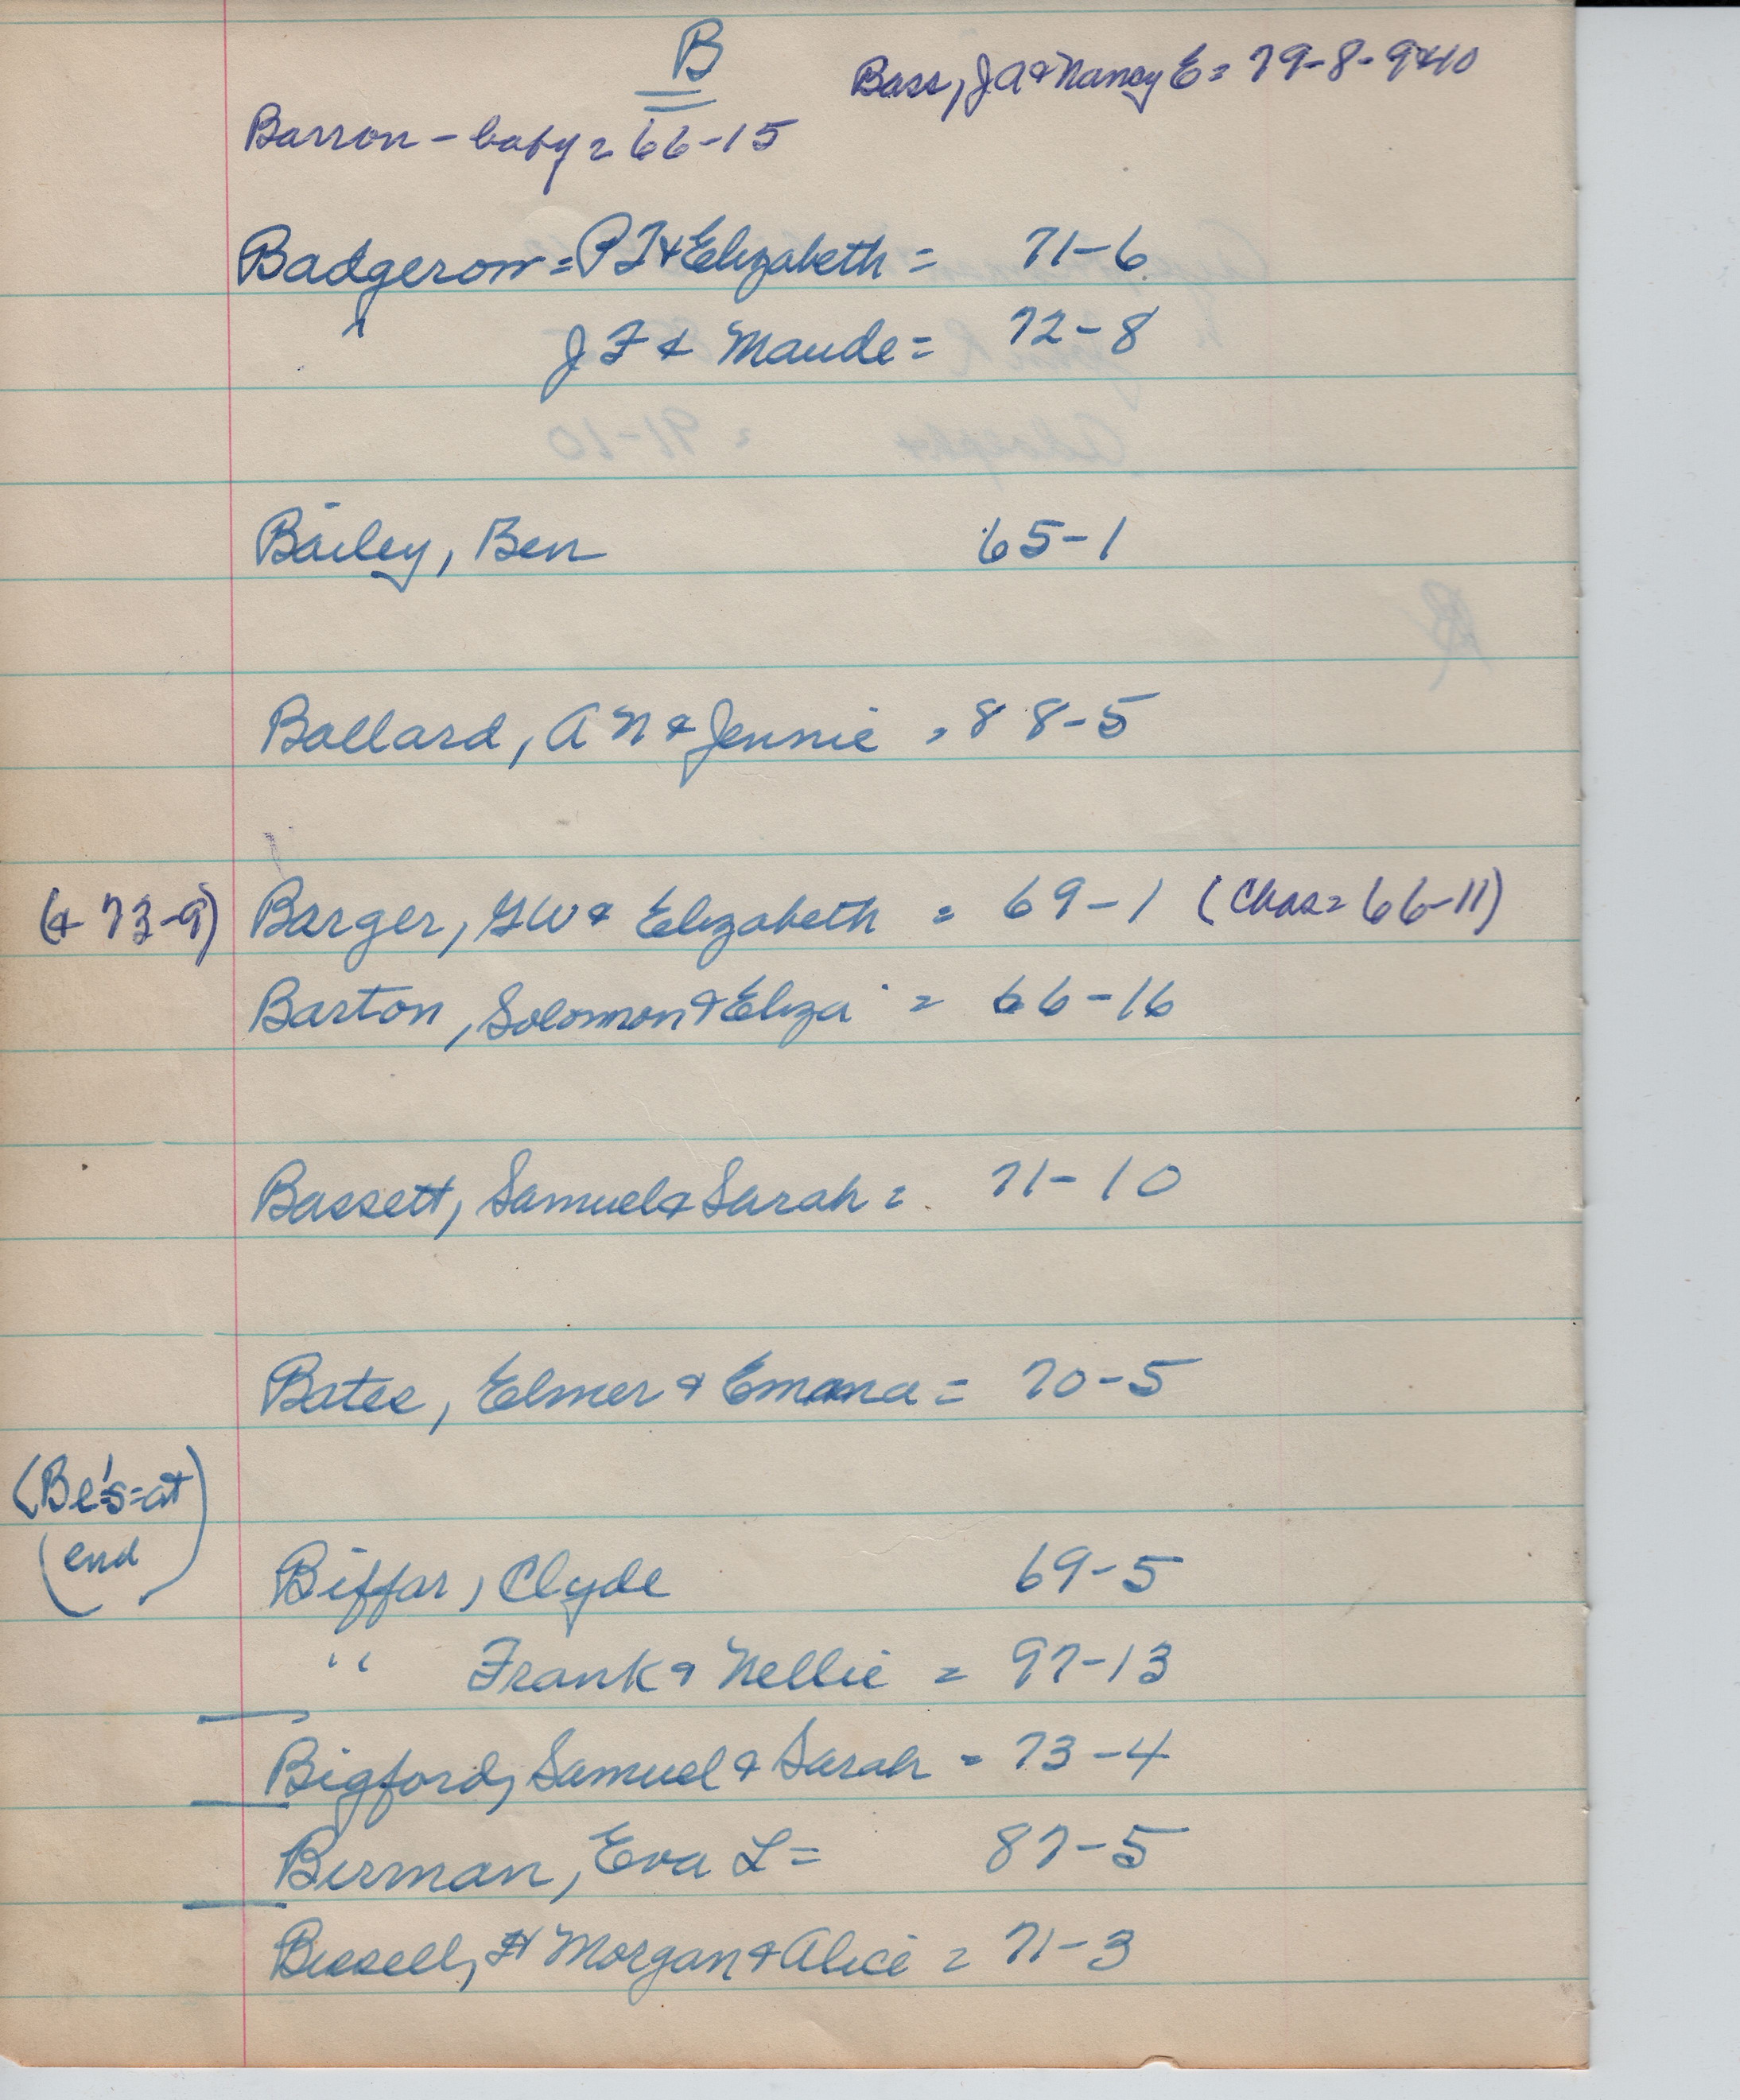 B
Bass, JA & Nancy E = 79-8-9+10
Barron - baby = 66-15
Badgerow = PJ & Elizabeth = 71-6
" J F & Maude = 72-8
Bailey, Ben 65-1
Ballard, A N & Jennie = 88-5
(& 73-9) Barger, GW & Elizabeth = 69-1 (Chas = 66-11)
Barton, Solomon & Eliza = 66-16
Bassett, Samuel & Sarah = 71-10
Bates, Elmer & Emma = 70-5
(Be's = at
end)
Biffar, Clyde 69-5
" Frank & Nellie = 97-13
Bigford, Samuel & Sarah = 73-4
Berman, Eva L = 87-5
Bissell, H Morgan & Alice = 71-3